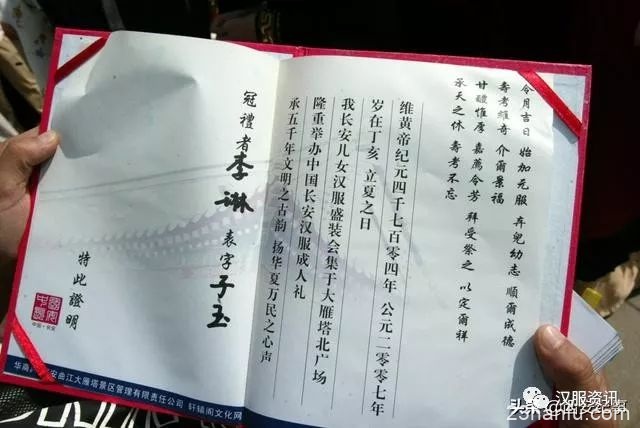 令月吉日 始加元服 弃兒幼志 順爾成德
壽考維奇 介爾景福
甘醴惟厚 嘉薦令芳 拜受祭之 以定爾祥
承天之休 壽考不忘
维黄帝纪元四千七百零四年 公元二〇〇七年
岁在丁亥 立夏之日
我长安儿女汉服盛装会集于大雁塔北广场
隆重举办中国长安汉服成人礼
承五千年文明之古韵 扬华夏万民之心声
冠禮者李琳 表字子玉
特此證明
中国·长安
华商 安曲江大雁塔景区管理有限责任公司 轩辕阁文化网
汉服资讯